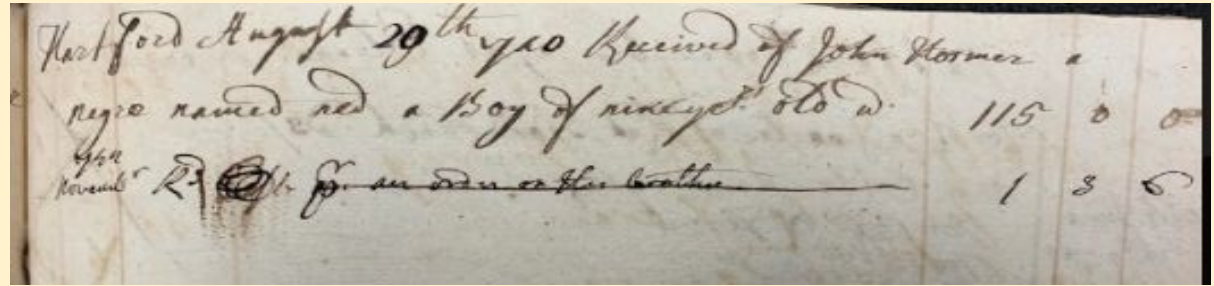 Hartford August 29th Received of John Hormer a
negro named ned a Boy of nine yers old 115 0 0
Novembr Rd for an order on Her brother 1 3 6